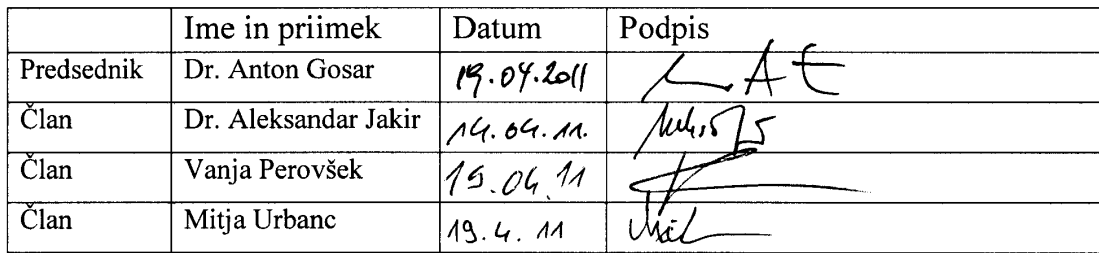 Ime in priimek Datum Podpis
Predsednik Dr. Anton Gosar 19.04.2011
Član Dr. Aleksandar Jakir 14.04.11.
Član Vanja Perovšek 19.04.11
Član Mitja Urbanc 19.4.11